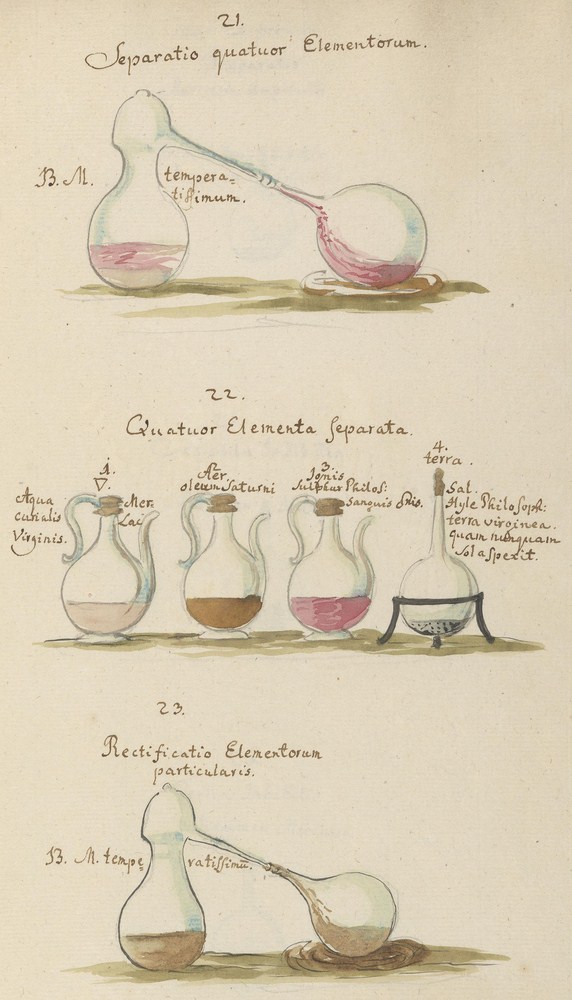 21.
Separatio quatuor Elementorum.
B. M.
tempera=
tissimum.
22.
Quatuor Elementa separata.
1.
▽
Aqua
Virginis.
Mer.
Lac.
2.
Aer.
oleum Saturni
3.
Ignis
Sulphur Philos:
Sanguis
4.
terra.
Sal.
Hyle Philosoph:
terra virginea.
quam nunquam
Sol aspexit.
23.
Rectificatio Elementorum
particularis.
B. M. tempe=
ratissimū.